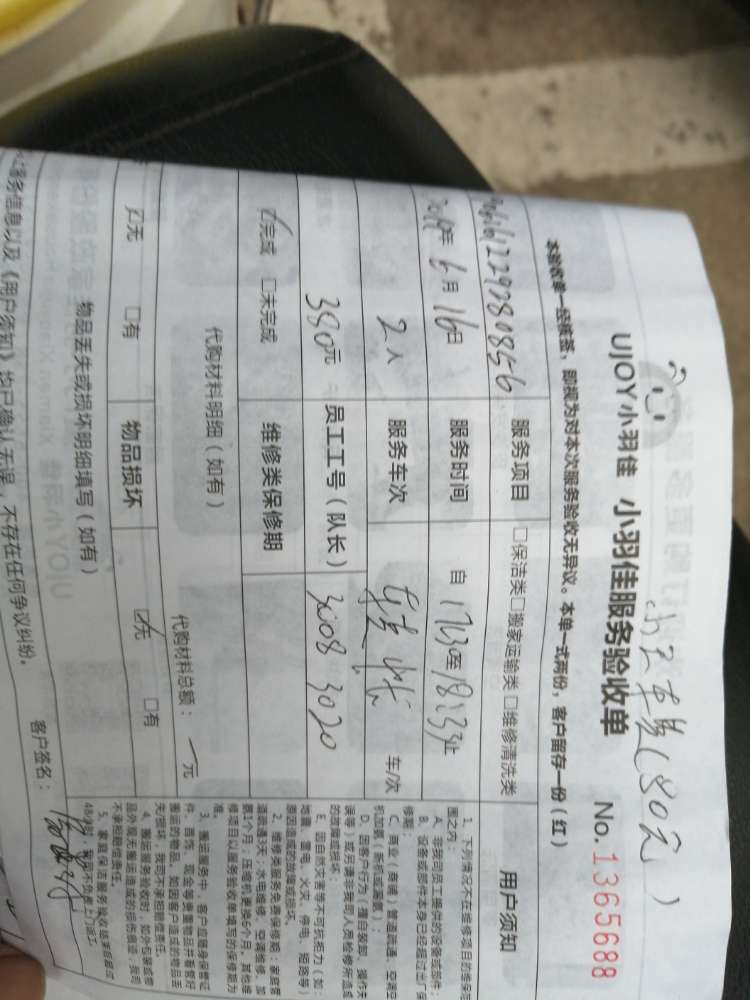 (80元)
UJOY小羽佳 小羽佳服务验收单 No. 1365688
本验收单一经核签,即视为对本次服务验收无异议。本单一式两份,客户留存一份(红)
服务项目 □保洁类□搬家运输类□维修清洗类 用户须知
年 6月 16日 服务时间 自 1713至1833止
2人 服务车次 车/次
380元 员工工号(队长) 3008 3020
☑完成 □未完成 维修类保修期
代购材料明细(如有) 代购材料总额: 一元
☑无 □有 物品损坏 ☑无 □有
物品丢失或损坏明细填写(如有)
服务信息以及《用户须知》均已确认无误,不存在任何争议纠纷。 客户签名:
1、下列情况不在维修项目的维保范
围之内:
A、非我司员工提供的设备或部件;
B、设备或部件本身已经超过出厂保
修期;
C、商业(商铺)管道疏通、空调空
机加氟(新机或漏氟);
D、因客户行为(擅自装卸、操作失
误等)或另请非我司人员检修所造成
的故障或损坏;
E、因自然灾害等不可抗拒力(如:
地震、雷电、火灾、停电、短路等)
原因造成的故障或损坏。
2、维修类服务免费保修期:家庭管
道疏通3天;水电维修、空调维修、加
氨1个月;压缩机更换6个月。其他维
修项目以服务验收单填写的保修期为
准。
3、搬运服务中,客户应随身保管证
件、首饰、现金等贵重物品并看管好
搬运的物品,如因客户造成的物品丢
失/损坏,我司不承担赔偿责任。
4、搬运服务验收时,如外包装或物
品外观无搬运造成的损伤痕迹,我司
不承担赔偿责任。
5、家庭保洁服务验收结束后超过
48小时,我司不负责上门返工。